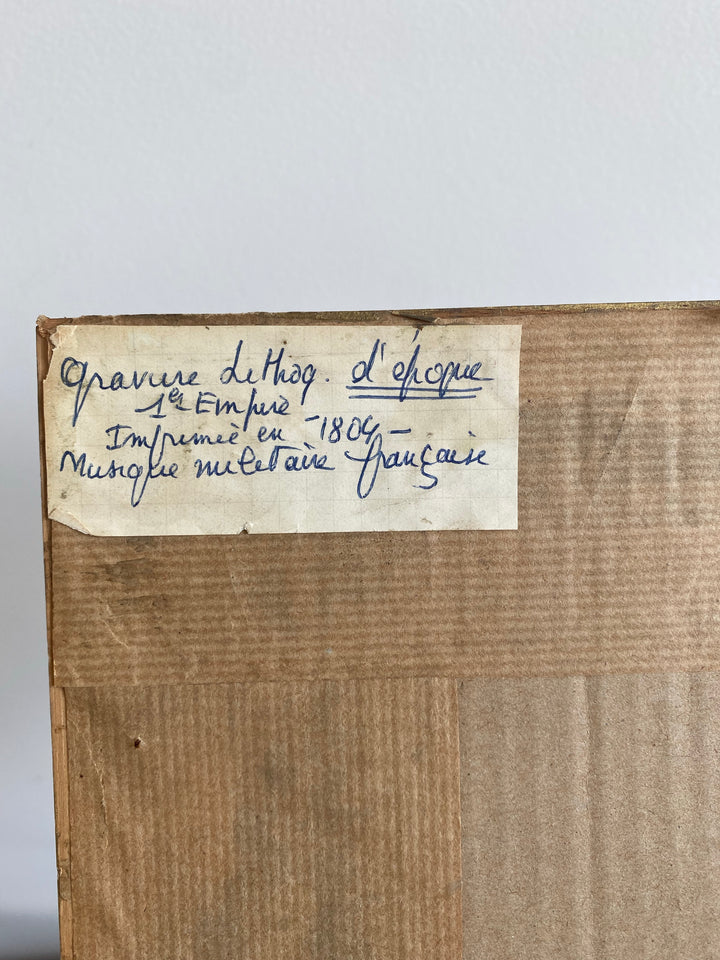 gravure Lithog. d'époque
1er Empire
Imprimée en -1804-
Musique militaire française